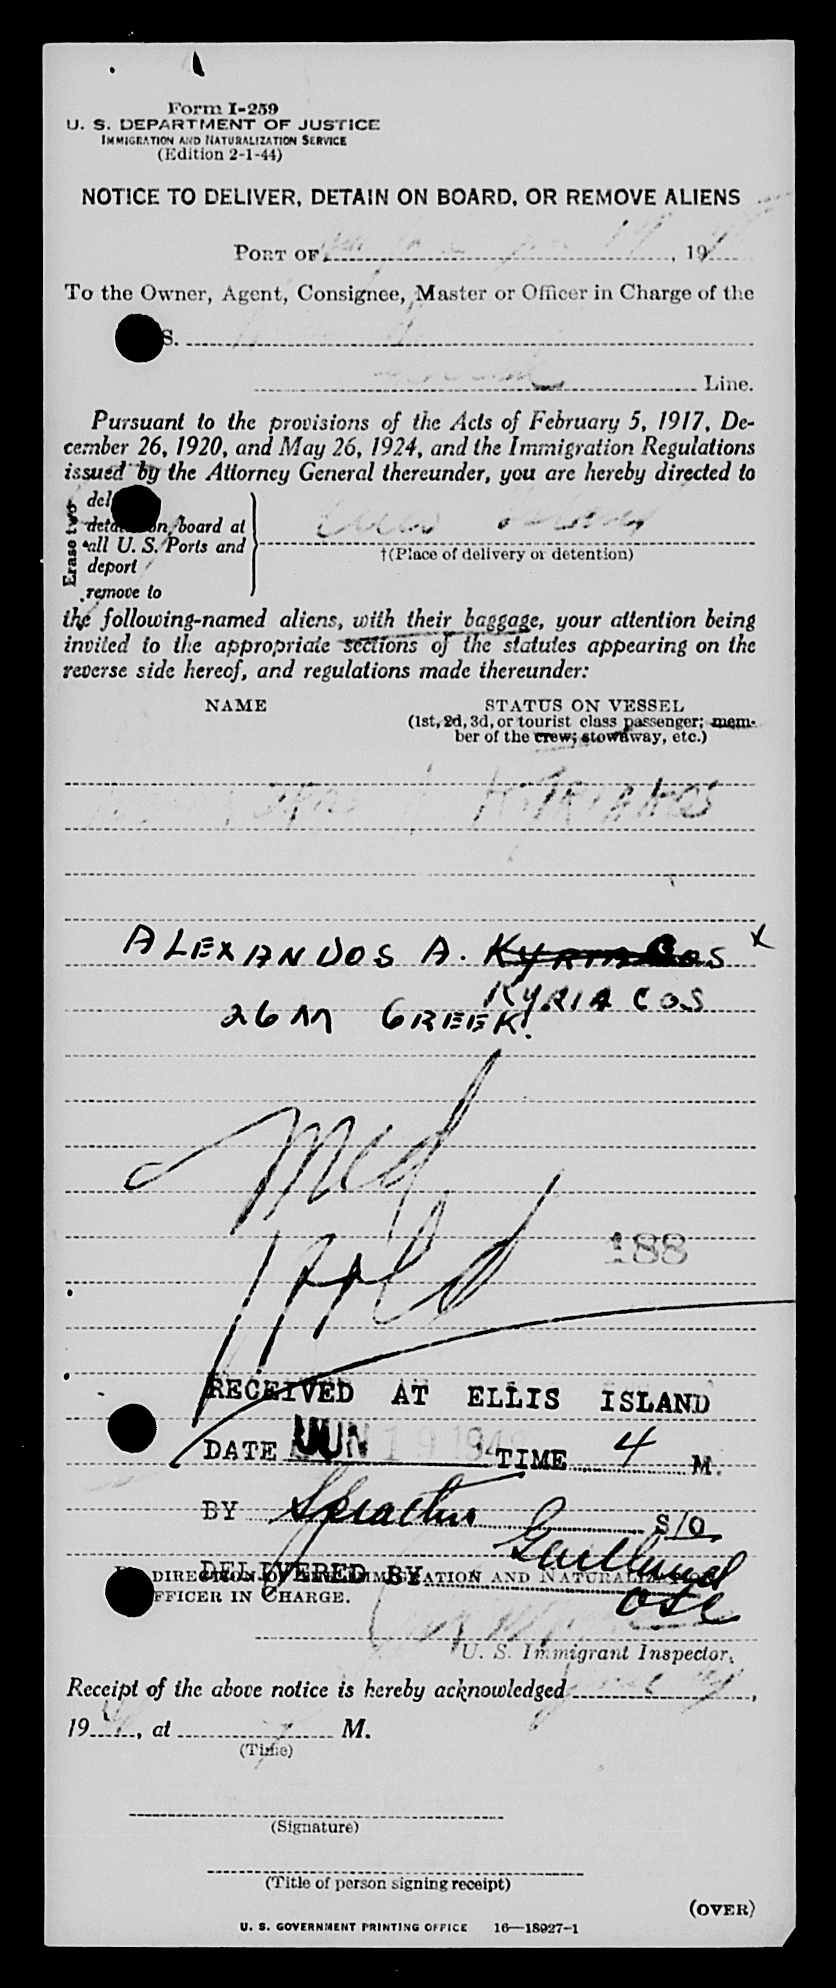 Form I-259
U. S. DEPARTMENT OF JUSTICE
IMMIGRATION AND NATURALIZATION SERVICE
(Edition 2-1-44)
NOTICE TO DELIVER, DETAIN ON BOARD, OR REMOVE ALIENS
PORT OF , 19
To the Owner, Agent, Consignee, Master or Officer in Charge of the
S.
Line.
Pursuant to the provisions of the Acts of February 5, 1917, De-
cember 26, 1920, and May 26, 1924, and the Immigration Regulations
issued by the Attorney General thereunder, you are hereby directed to
Erase two
del
detain on board at
all U. S. Ports and
deport
remove to
Ellis Island
†(Place of delivery or detention)
the following-named aliens, with their baggage, your attention being
invited to the appropriate sections of the statutes appearing on the
reverse side hereof, and regulations made thereunder:
NAME STATUS ON VESSEL
(1st, 2d, 3d, or tourist class passenger; mem-
ber of the crew; stowaway, etc.)
ALEXANDOS A. KYRIACOS X
KYRIACOS
26 M GREEK.
Med
Hold
188
RECEIVED AT ELLIS ISLAND
DATE JUN 19 194 TIME 4 M.
BY S/O
DELIVERED BY
DIRECTION OF THE IMMIGRATION AND NATURALIZATION
OFFICER IN CHARGE.
U. S. Immigrant Inspector.
Receipt of the above notice is hereby acknowledged ,
19 , at M.
(Time)
(Signature)
(Title of person signing receipt)
(OVER)
U. S. GOVERNMENT PRINTING OFFICE 16—18927-1